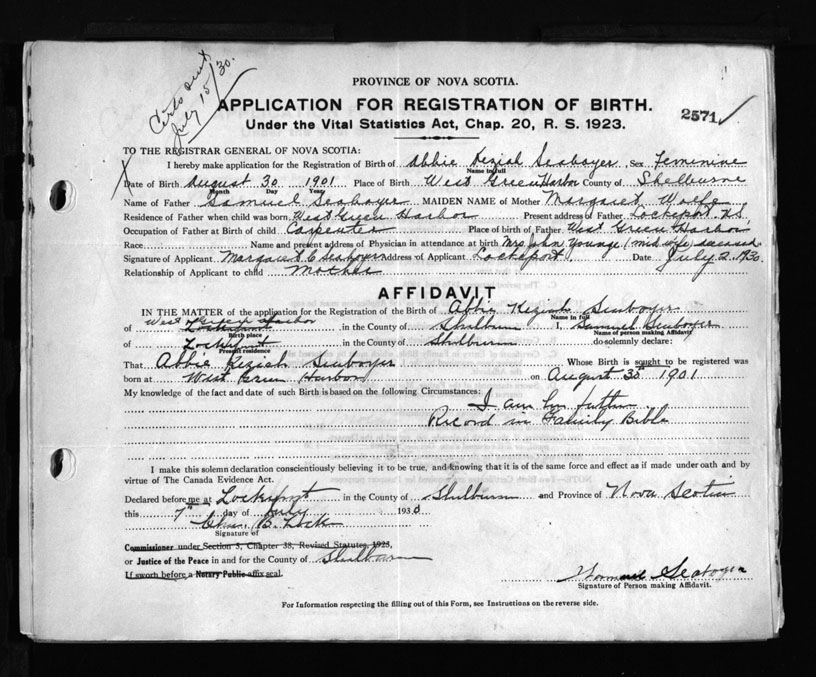 Certs sent
July 15/30.
PROVINCE OF NOVA SCOTIA.
APPLICATION FOR REGISTRATION OF BIRTH.
2571
Under the Vital Statistics Act, Chap. 20, R. S. 1923.
TO THE REGISTRAR GENERAL OF NOVA SCOTIA:
I hereby make application for the Registration of Birth of Abbie Keziah Seaboyer Sex Feminine
Name in full
Date of Birth August 30 1901 Place of Birth West Green Harbor County of Shelburne
Month Day Year
Name of Father Samuel Seaboyer MAIDEN NAME of Mother Margaret Wolfe
Residence of Father when child was born West Green Harbor Present address of Father Lockeport. N.S.
Occupation of Father at Birth of child Carpenter Place of birth of Father West Green Harbor
Race Name and present address of Physician in attendance at birth Mrs John Younge (mid wife) deceased
Signature of Applicant Margaret C Seaboyer Address of Applicant Lockeport. Date July 2, 1930.
Relationship of Applicant to child Mother
AFFIDAVIT
IN THE MATTER of the application for the Registration of the Birth of Abbie Keziah Seaboyer
Name in full
West Green Harbor
of Lockeport in the County of Shelburn I, Samuel Seaboyer
Birth place Name of person making Affidavit
of Lockeport in the County of Shelburn do solemnly declare:
Present residence
That Abbie Keziah Seaboyer Whose Birth is sought to be registered was
born at West Green Harbor on August 30th 1901
My knowledge of the fact and date of such Birth is based on the following Circumstances:
I am her father
Record in Family Bible
I make this solemn declaration conscientiously believing it to be true, and knowing that it is of the same force and effect as if made under oath and by
virtue of The Canada Evidence Act.
Declared before me at Lockeport in the County of Shelburn and Province of Nova Scotia
this 7th day of July 1930
B. Lock
Signature of
Commissioner under Section 3, Chapter 38, Revised Statutes, 1923,
or Justice of the Peace in and for the County of Shelburn
If sworn before a Notary Public affix seal.
Seaboyer
Signature of Person making Affidavit.
For Information respecting the filling out of this Form, see Instructions on the reverse side.